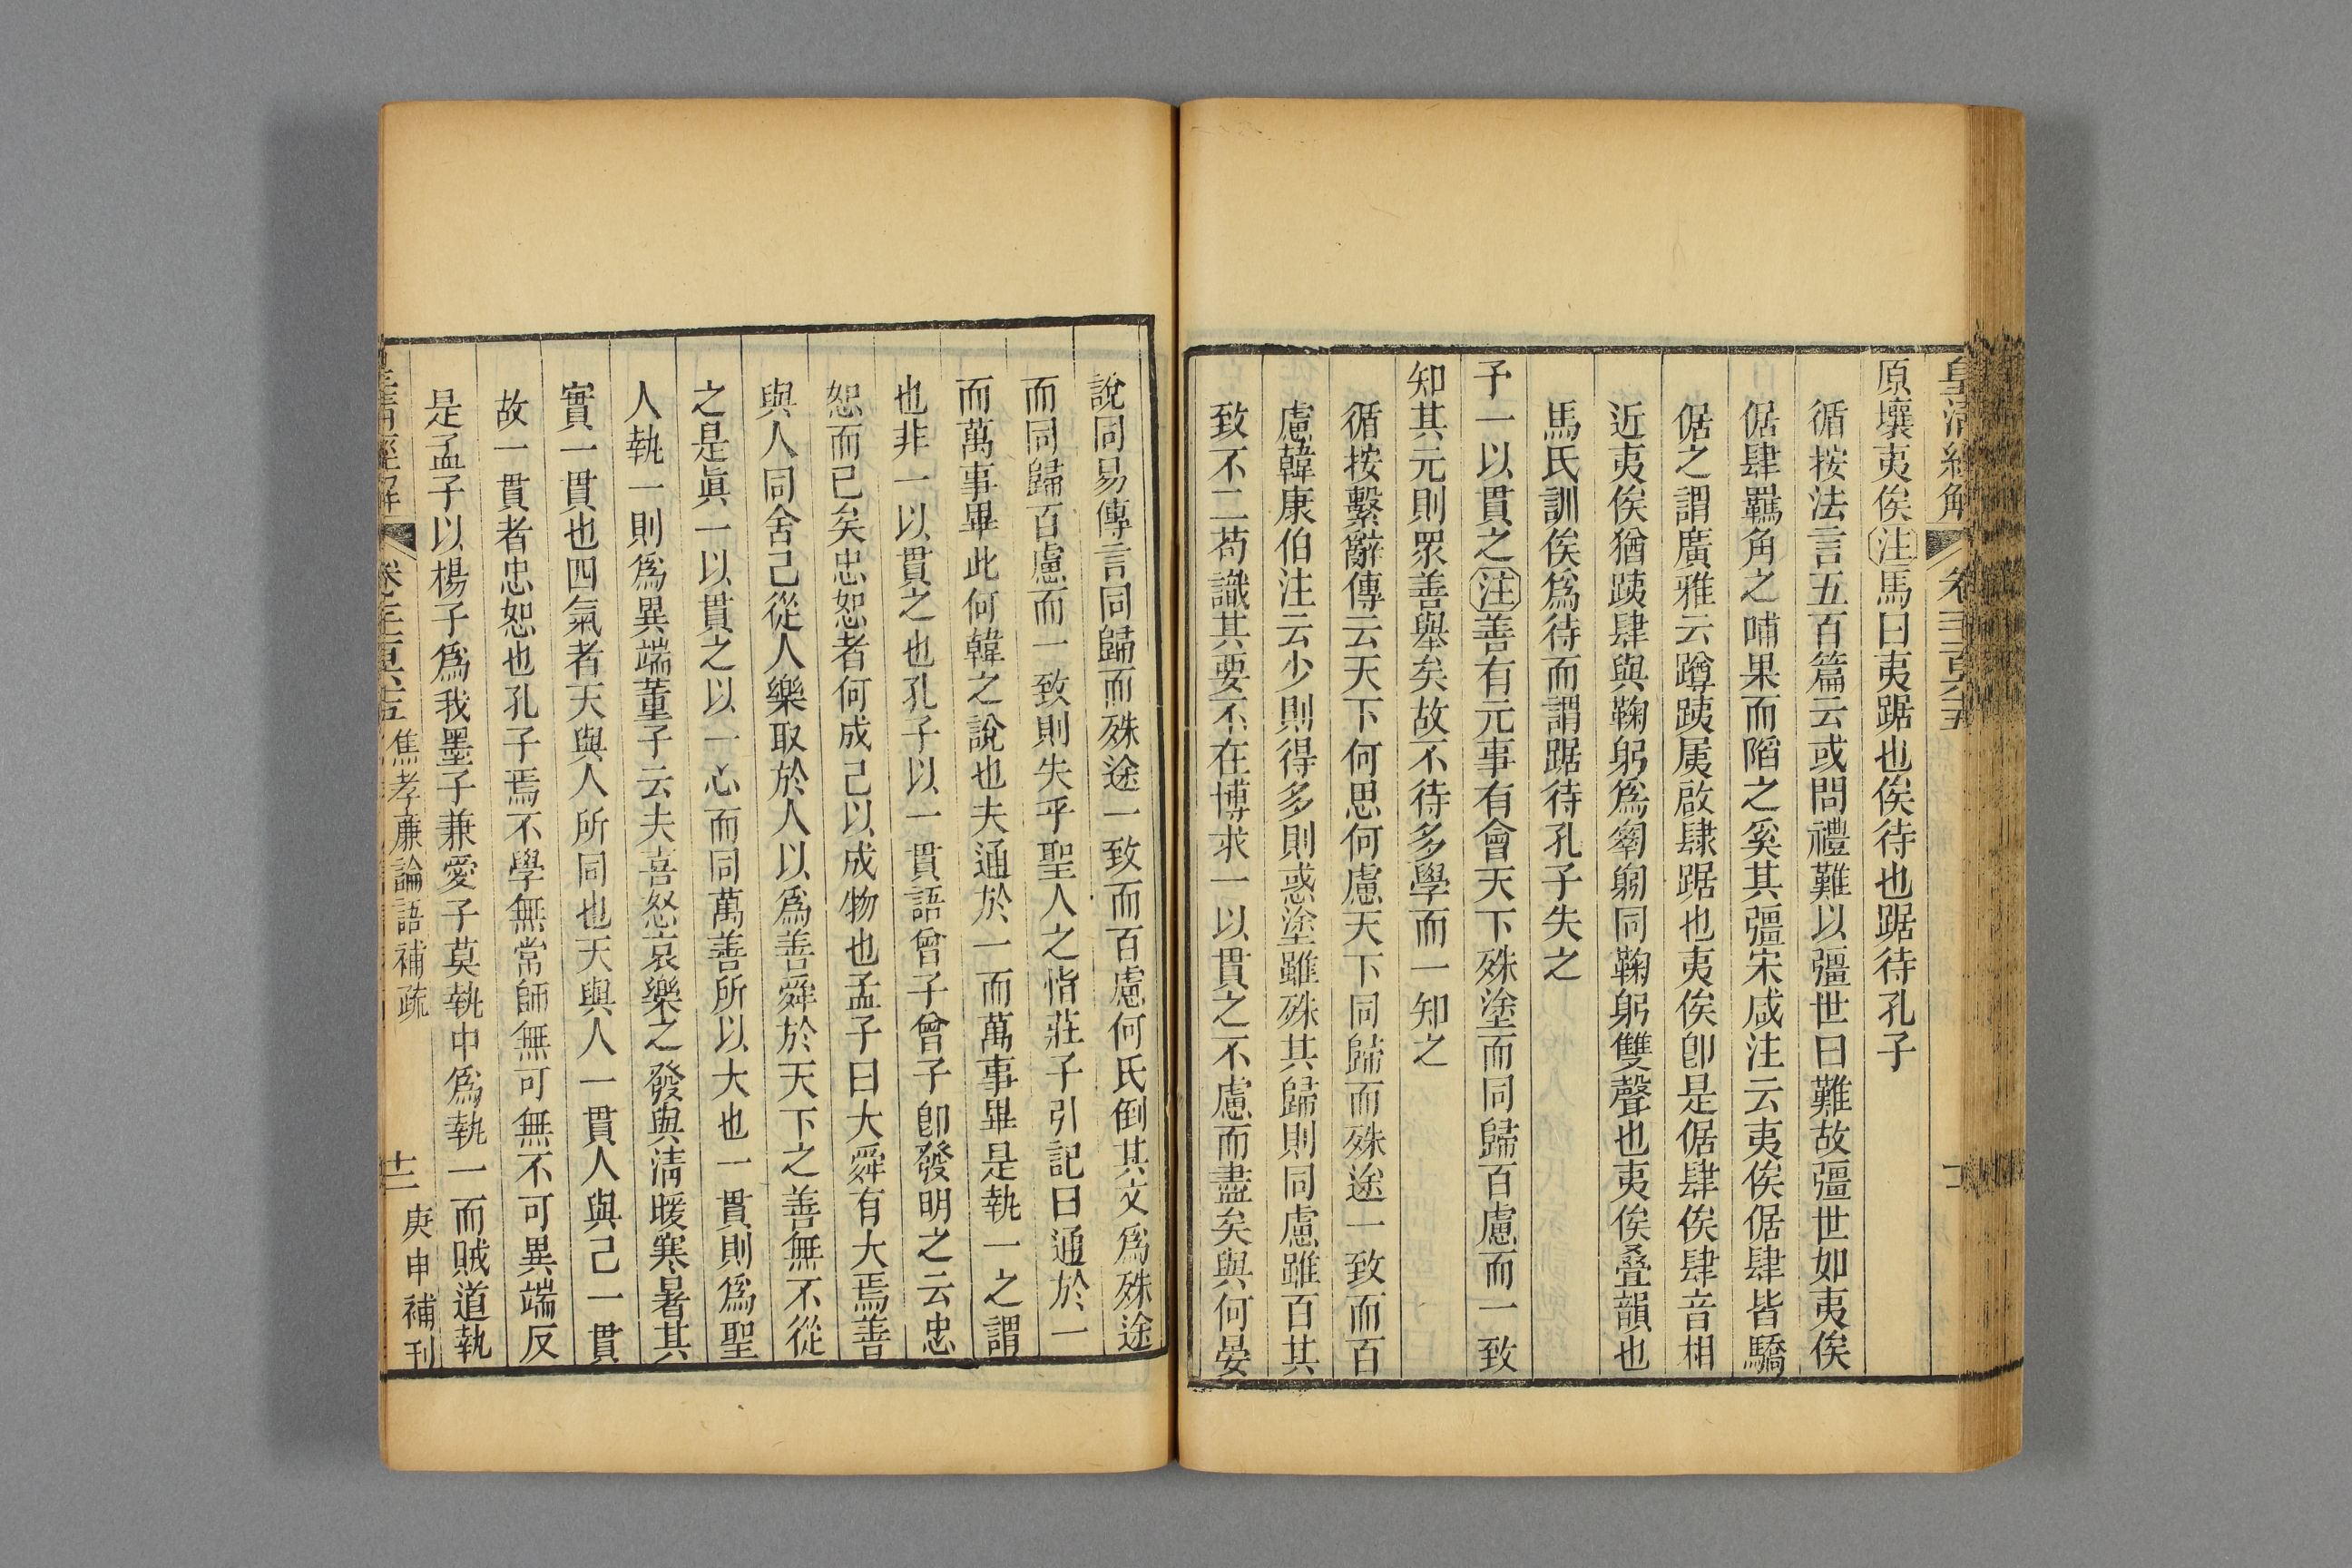 皇清經解
原壤夷俟注馬曰夷踞也俟待也踞待孔子
循按法言五百篇云或問禮難以彊世曰難故彊世如夷俟
倨肆羈角之哺果而䧟之奚其彊宋咸注云夷俟倨肆皆驕
倨之謂廣雅云蹲跠㞐啟肆踞也夷俟卽是倨肆俟肆音相
近夷俟猶跠肆與鞠躬爲匑躳同鞠躬雙聲也夷俟疊韻也
馬氏訓俟爲待而謂踞待孔子失之
予一以貫之注善有元事有會天下殊塗而同歸百慮而一致
知其元則眾善舉矣故不待多學而一知之
循按繫辭傳云天下何思何慮天下同歸而殊途一致而百
慮韓康伯注云少則得多則惑塗雖殊其歸則同慮雖百其
致不二苟識其要不在博求一以貫之不慮而盡矣與何晏
說同易傳言同歸而殊途一致而百慮何氏倒其文爲殊途
而同歸百慮而一致則失乎聖人之恉莊子引記曰通於一
而萬事畢此何韓之說也夫通於一而萬事畢是執一之謂
也非一以貫之也孔子以一貫語曾子曾子卽發明之云忠
恕而已矣忠恕者何成己以成物也孟子曰大舜有大焉善
與人同舍己從人樂取於人以爲善舜於天下之善無不從
之是眞一以貫之以一心而同萬善所以大也一貫則爲聖
人執一則爲異端董子云夫喜怒哀樂之發與淸暖寒暑其
實一貫也四氣者天與人所同也天與人一貫人與己一貫
故一貫者忠恕也孔子焉不學無常師無可無不可異端反
是孟子以楊子爲我墨子兼愛子莫執中爲執一而賊道執
皇清經解 焦孝廉論語補疏 十二 庚申補刊